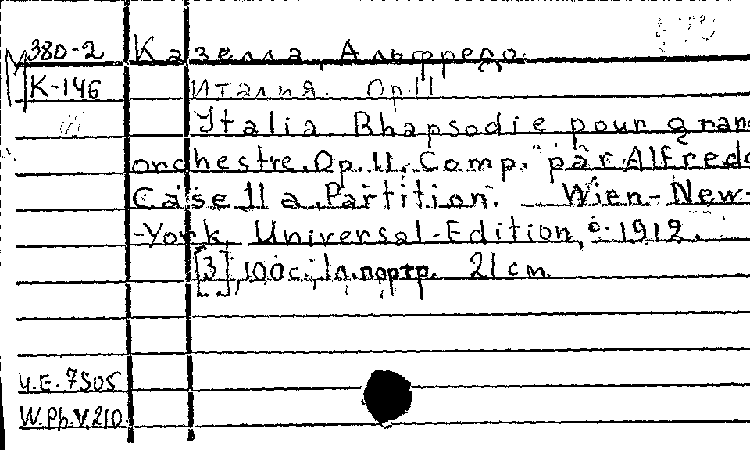 380-2 Казелла, Альфредо.
К-146 Италия. Op 11
Italia Rhapsodie pour gran
orchestre. Op. 11. Comp. par Alfredo
Casella. Partition. Wien-New-
-York, Universal-Edition, c. 1912.
[3], 100 c.; 1 л. портр. 21 cm
U.E. 7505
W.Ph.V. 210